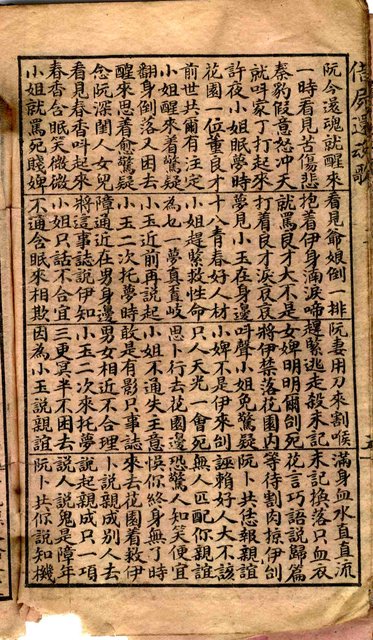 借屍還魂歌
阮今還魂就醒來 看見爺娘倒一排 阮妻用刀來割喉 滿身血水直直流
一時看見苦傷悲 抱着伊身滿淚啼 趕緊逃走殺未記 未記換落只血衣
秦豹假意怒冲天 就罵良才大不是 女婢明明爾刣死 花言巧語說歸篇
就叫家丁打起來 打着良才淚哀哀 將伊禁落花園內 等待割肉掠伊刣
許夜小姐眠夢時 夢見小玉在身邊 叫聲小姐免驚疑 阮卜共恁報親誼
花園一位董良才 十八青春好人材 小婢不是伊來刣 誣賴好人大不該
前世共爾有注定 小姐趕緊救性命 只人天光一會死 無人匹配你親誼
小姐醒來着驚疑 為乜一夢真蹺歧 思卜行去花園邊 恐驚人知笑便宜
翻身倒落又困去 小玉近前再說起 小姐不通失主意 悞你終身無了時
醒來思着愈驚疑 小玉二次托夢時 敢是有影只事誌 來去花園看救伊
念阮深閨人女兒 障通近在男身邊 男女相近不合理 卜說親成別人去
看見春香叫起來 將這事誌說伊知 小玉二次來托夢 說起親成只一項
春香含眠笑微微 小姐只話不合宜 三更冥半不困去 說人說鬼是障年
小姐就罵死賤婢 不通含眠來相欺 因為小玉說親誼 阮卜共你說知機